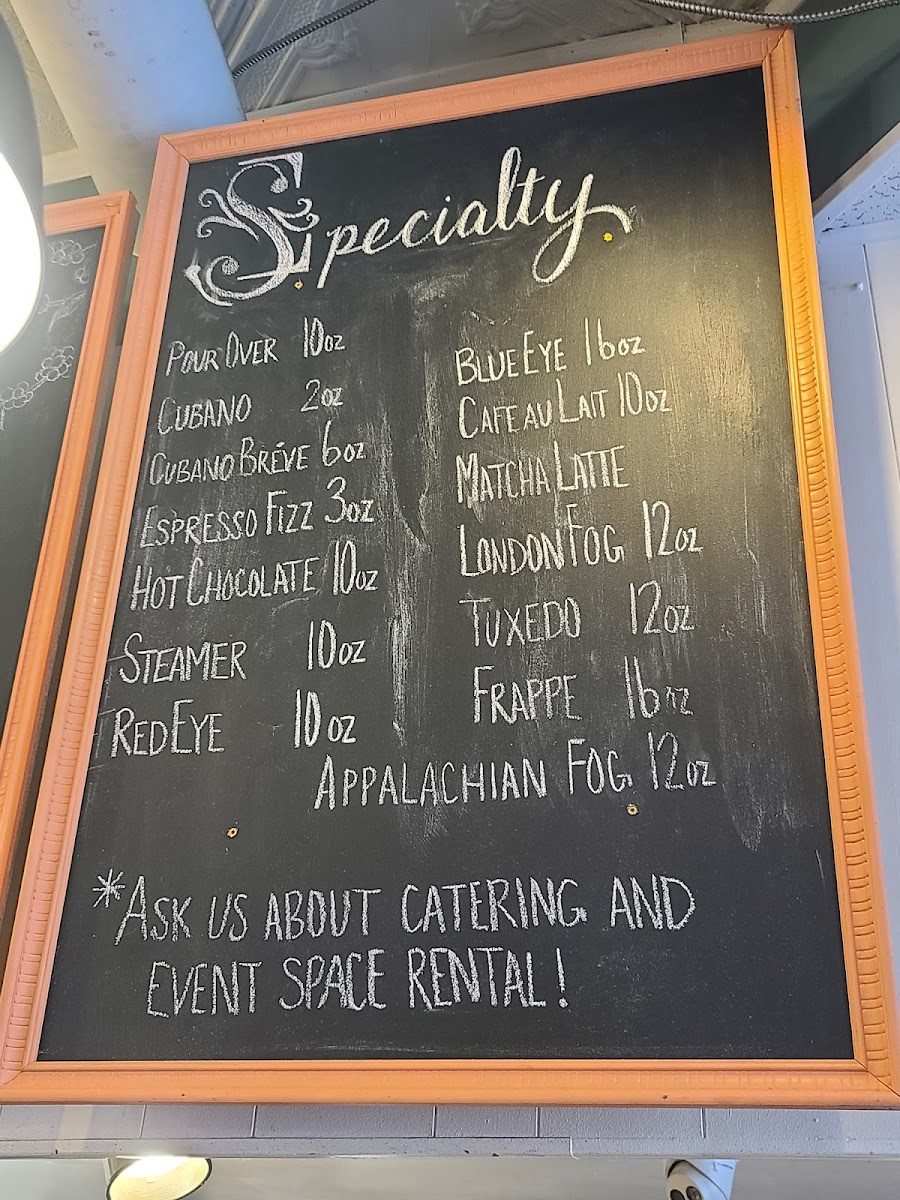 Specialty
Pour Over 10oz
Cubano 2oz
Cubano Bréve 6oz
Espresso Fizz 3oz
Hot Chocolate 10oz
Steamer 10oz
Red Eye 10oz
Blue Eye 16oz
Cafe au Lait 10oz
Matcha Latte
London Fog 12oz
Tuxedo 12oz
Frappe 16oz
Appalachian Fog 12oz
*Ask us about catering and
event space rental!